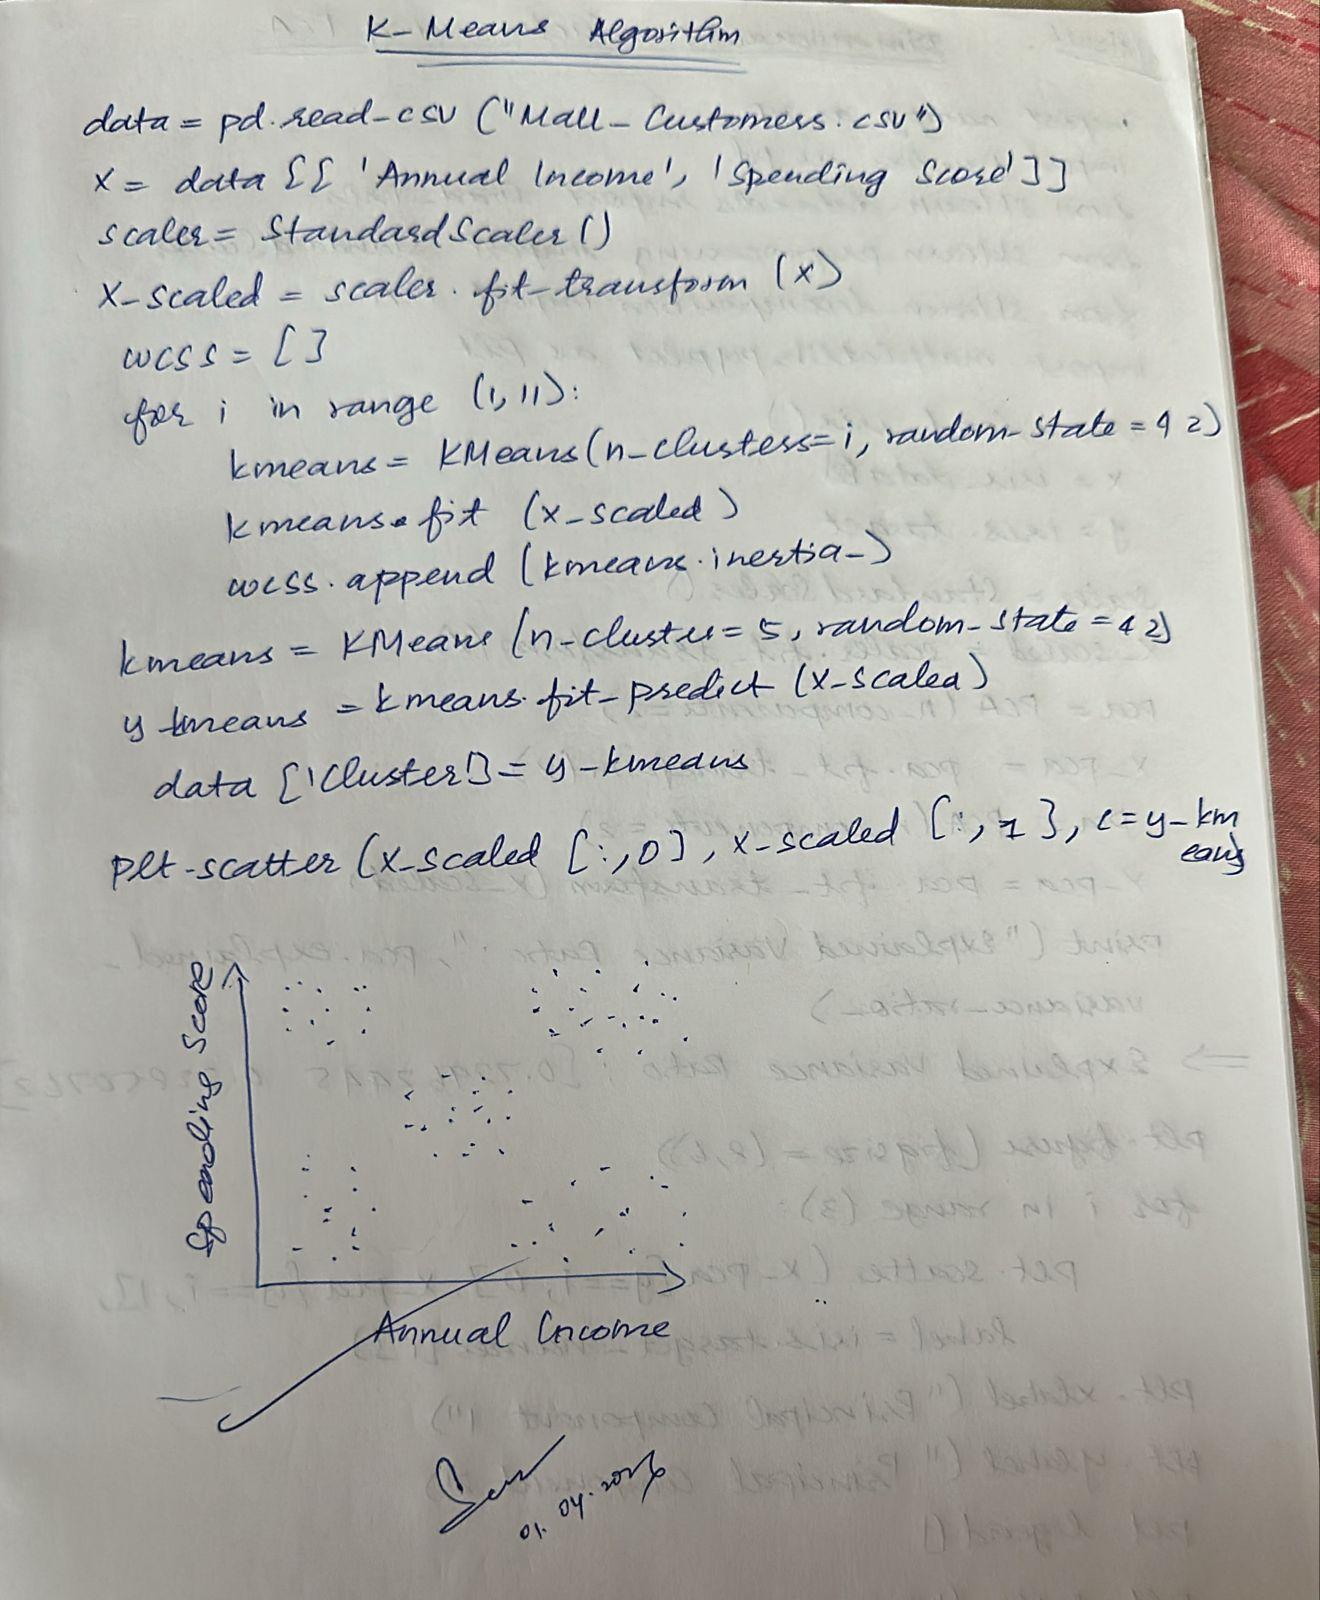 K-Means Algorithm
data = pd.read_csv ("Mall_Customers.csv")
X = data [[ 'Annual Income', 'Spending Score' ]]
scaler = StandardScaler ()
X_scaled = scaler.fit_transform (X)
wcss = [ ]
for i in range (1, 11):
kmeans = KMeans (n_clusters=i, random_state = 42)
kmeans.fit (X_scaled)
wcss.append (kmeans.inertia_)
kmeans = KMeans (n_cluster = 5, random_state = 42)
y_kmeans = kmeans.fit_predict (X_scaled)
data ['Cluster'] = y_kmeans
plt.scatter (X_scaled [:, 0], X_scaled [:, 1], c = y_km
eans)
Spending Score
Annual Income